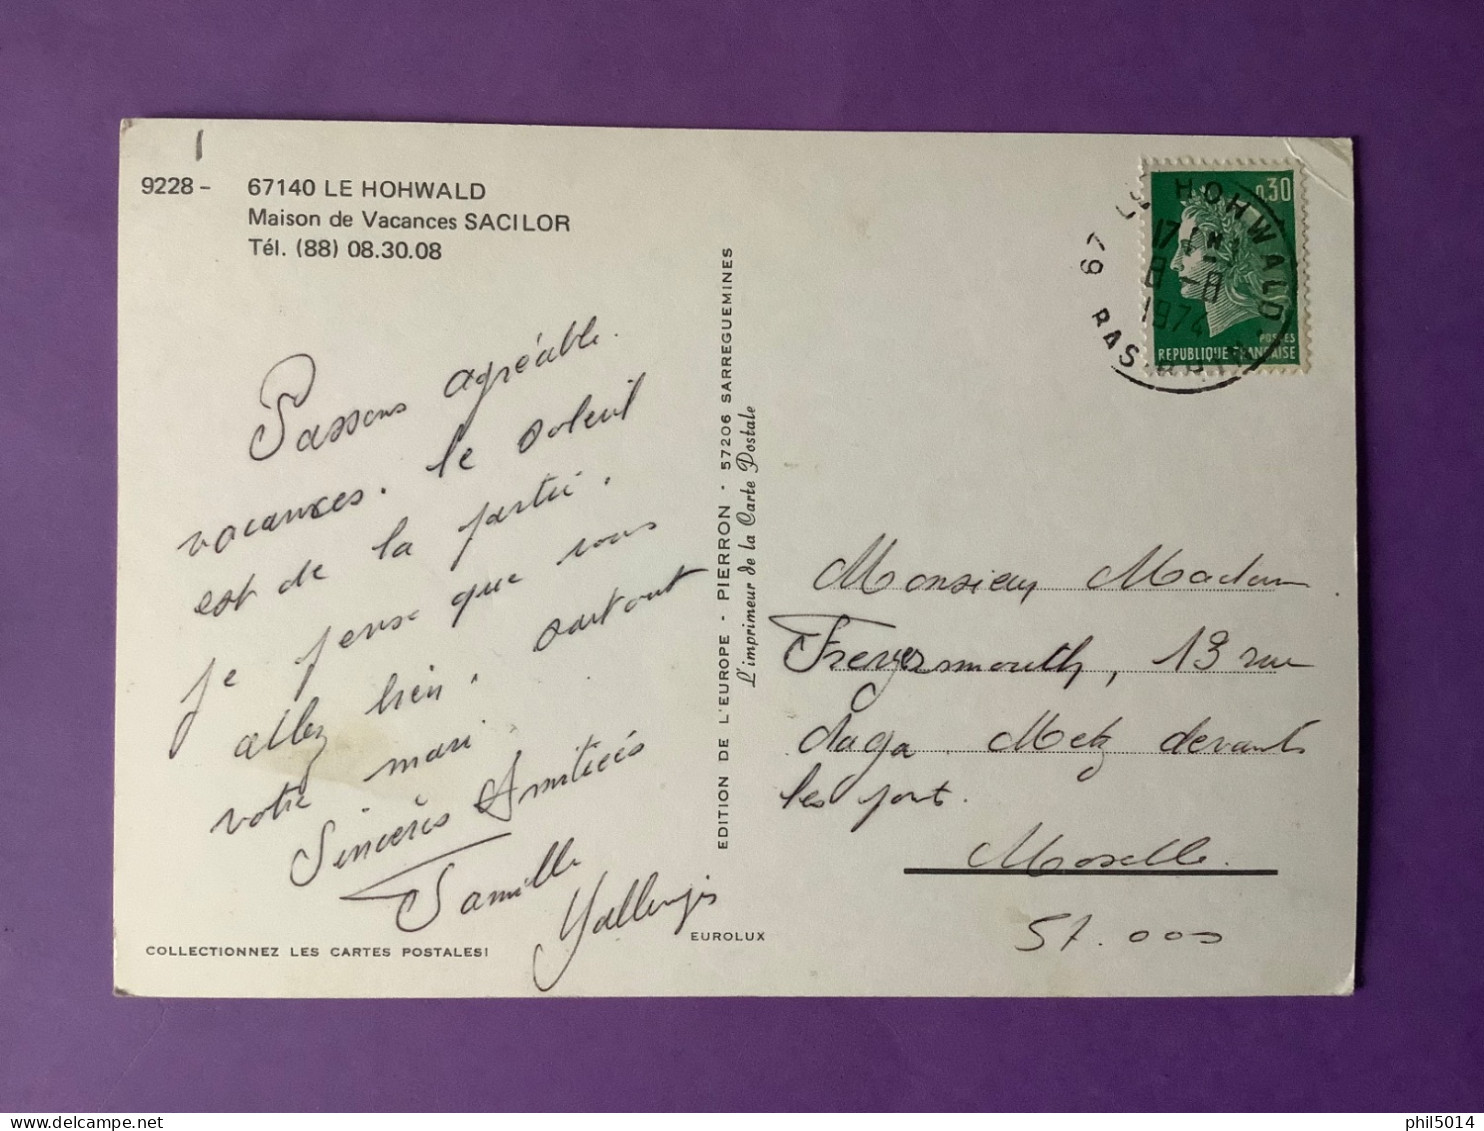 9228 - 67140 LE HOHWALD
Maison de Vacances SACILOR
Tél. (88) 08.30.08
Passons agréable
vacances. le soleil
est de la partie.
je pense que vous
allez bien, surtout
votre mari.
Sincères Amitiées
Famille
COLLECTIONNEZ LES CARTES POSTALES!
EDITION DE L'EUROPE - PIERRON - 57206 SARREGUEMINES
L'imprimeur de la Carte Postale
EUROLUX
0,30
POSTES
REPUBLIQUE FRANÇAISE
HOHWALD
67 BAS RHIN
8-8
1974
Monsieur Madam
13 rue
Metz devant
les port.
Moselle.
57.000
phil5014